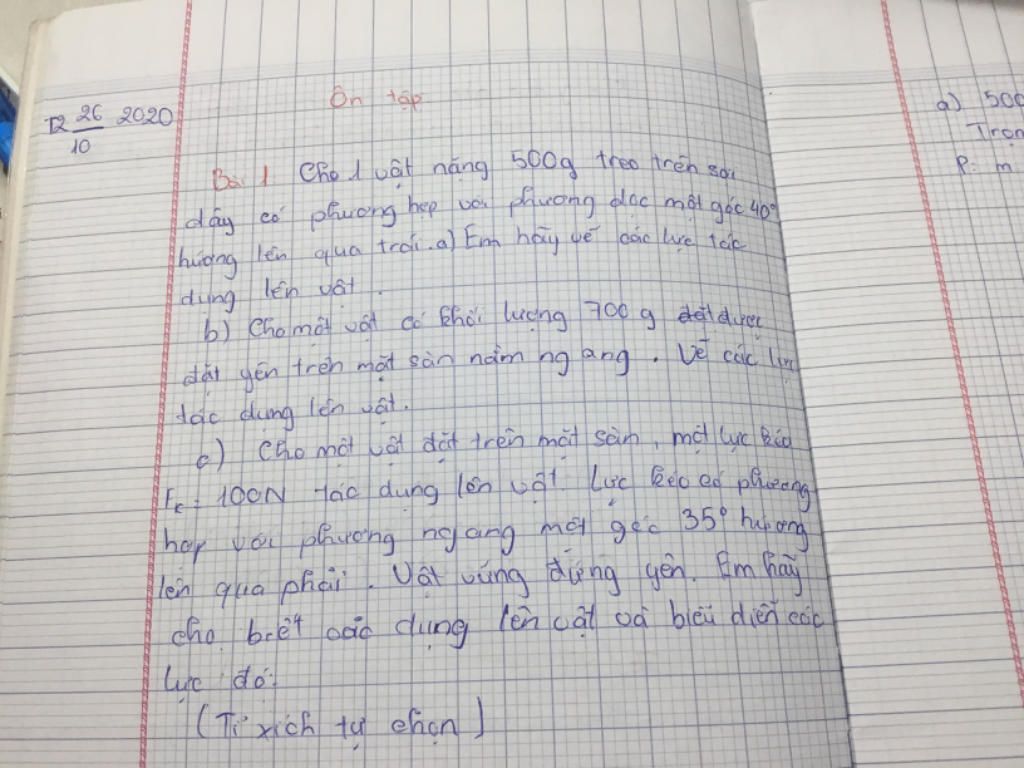 Ôn tập
T2 26/10 2020
Bài 1 Cho 1 vật nặng 500g treo trên sợi
dây có phương hợp với phương dọc một góc 40°
hướng lên qua trái. a) Em hãy vẽ các lực tác
dụng lên vật.
b) Cho một vật có khối lượng 700g được
đặt yên trên mặt sàn nằm ngang. Vẽ các lực
tác dụng lên vật.
c) Cho một vật đặt trên mặt sàn, một lực kéo
Fk = 100N tác dụng lên vật. Lực kéo có phương
hợp với phương ngang một góc 35° hướng
lên qua phải. Vật vững đứng yên. Em hãy
cho biết các dụng lên vật và biểu diễn các
lực đó.
(Tỉ xích tự chọn)
a) 500
Trọn
P: m